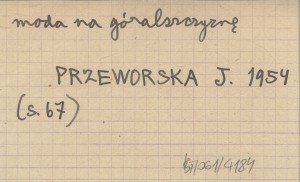 moda na góralszczyznę
PRZEWORSKA J. 1954
(s. 67)